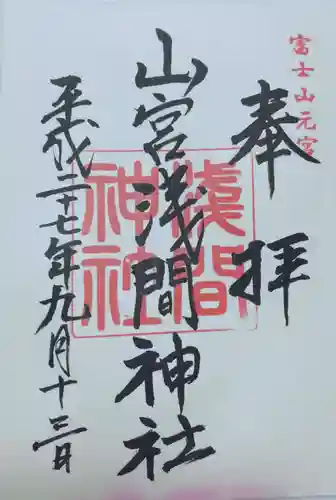 富士山元宮
奉拝
山宮浅間神社
浅間神社
平成二十七年九月十三日